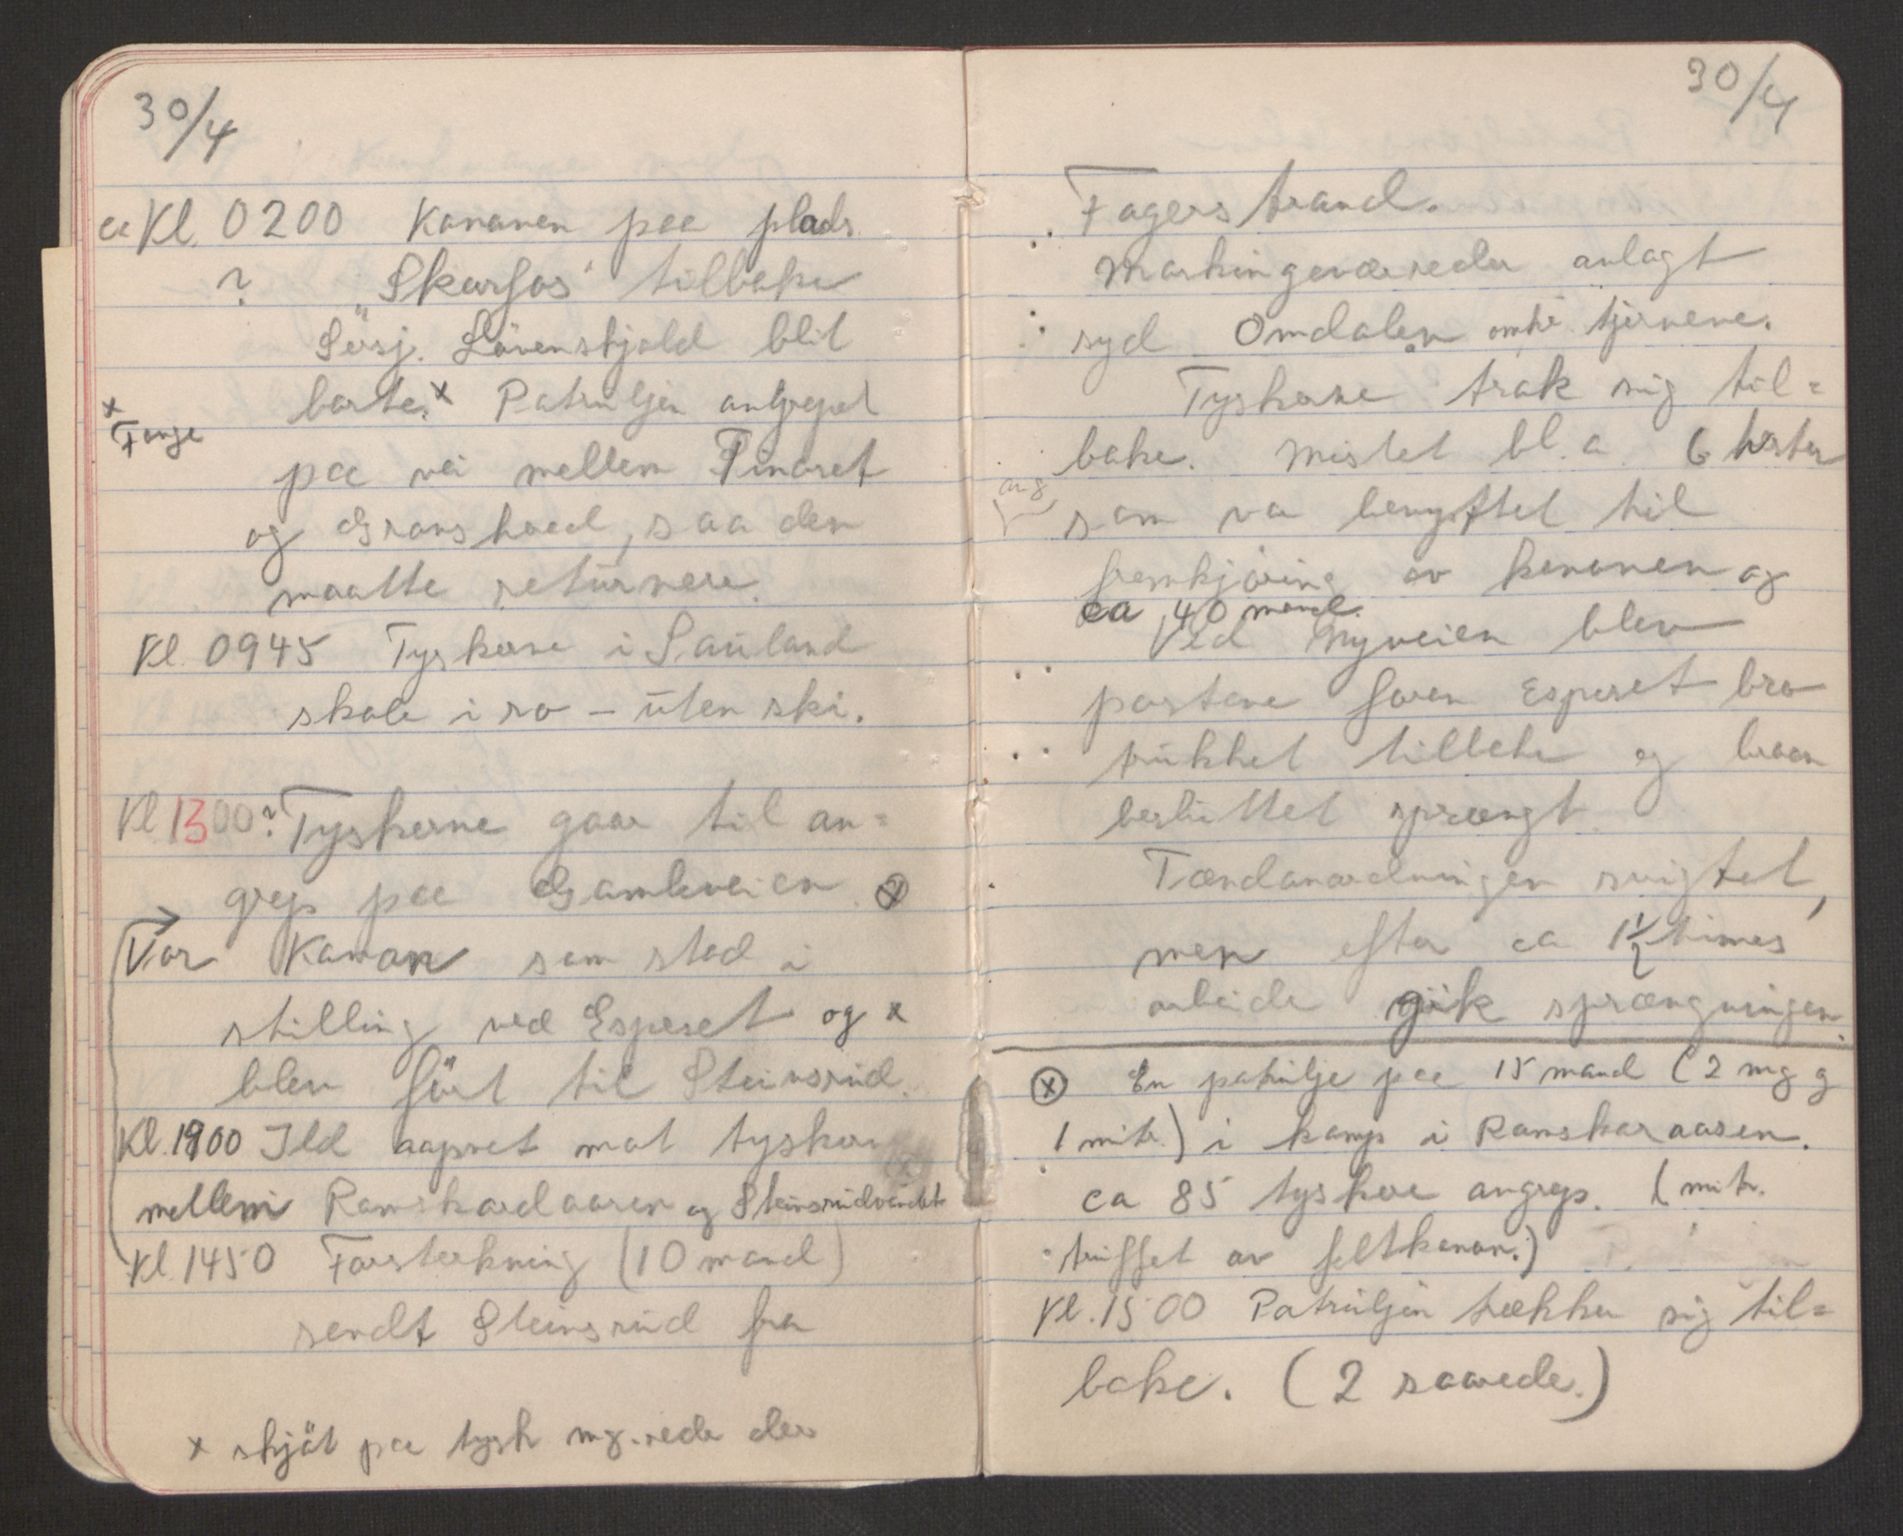 30/4
ca Kl. 0200 Kanonen paa plads
? "Skarfos" tilbake
Sersj. Lövenskjold blit
borte.x Patruljen angrepet
x Fange
paa vei mellem Finaret
og Gronshoed, saa den
maatte returnere.
Kl. 0945 Tyskerne i Sauland
skole i ro – uten ski.
Kl 1300? Tyskerne gaar til an=
grep paa Gamleveien ⓧ
Vor Kanon som stod i
stilling ved Espeset og x
blev fört til Steinsrud.
Kl. 1900 Ild aapnet mot tyskere
mellem Ramskardaasen og Steinsrudvandet
Kl. 1450 Forsterkning (10 mand)
sendt Steinsrud fra
x skjöt paa tysk mg. rede der
30/4
Fagerstrand.
Maskingeværreder anlagt
syd Omdalen omkr. tjernene.
Tyskerne trak sig til=
bake. Mistet bl.a. 6 hester
som var benyttet til
fremkjöring av kanonen og
ca 40 mand.
Ved Nyveien blev
postene foran Espeset bro
trukket tilbake og broen
besluttet sprængt.
Tændanordningen svigtet,
men efter ca 1½ times
arbeide gik sprængningen.
ⓧ En patrulje paa 15 mand (2 mg og
1 mitr.) i kamp i Ramskaraasen.
ca 85 tyskere angrep. (mitr.
truffet av feltkanon.)
Kl. 1500 Patruljen trækker sig til=
bake. (2 saarede.)